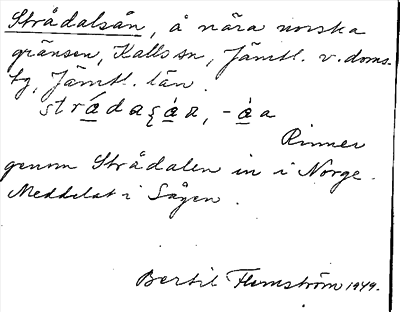 Strådalsån, å nära norska
gränsen, Kalls sn, Jämtl. v. doms.
tg, Jämtl. län.
Rinner
genom Strådalen in i Norge.
Meddelat i Sågen.
Bertil Flemström 1949.